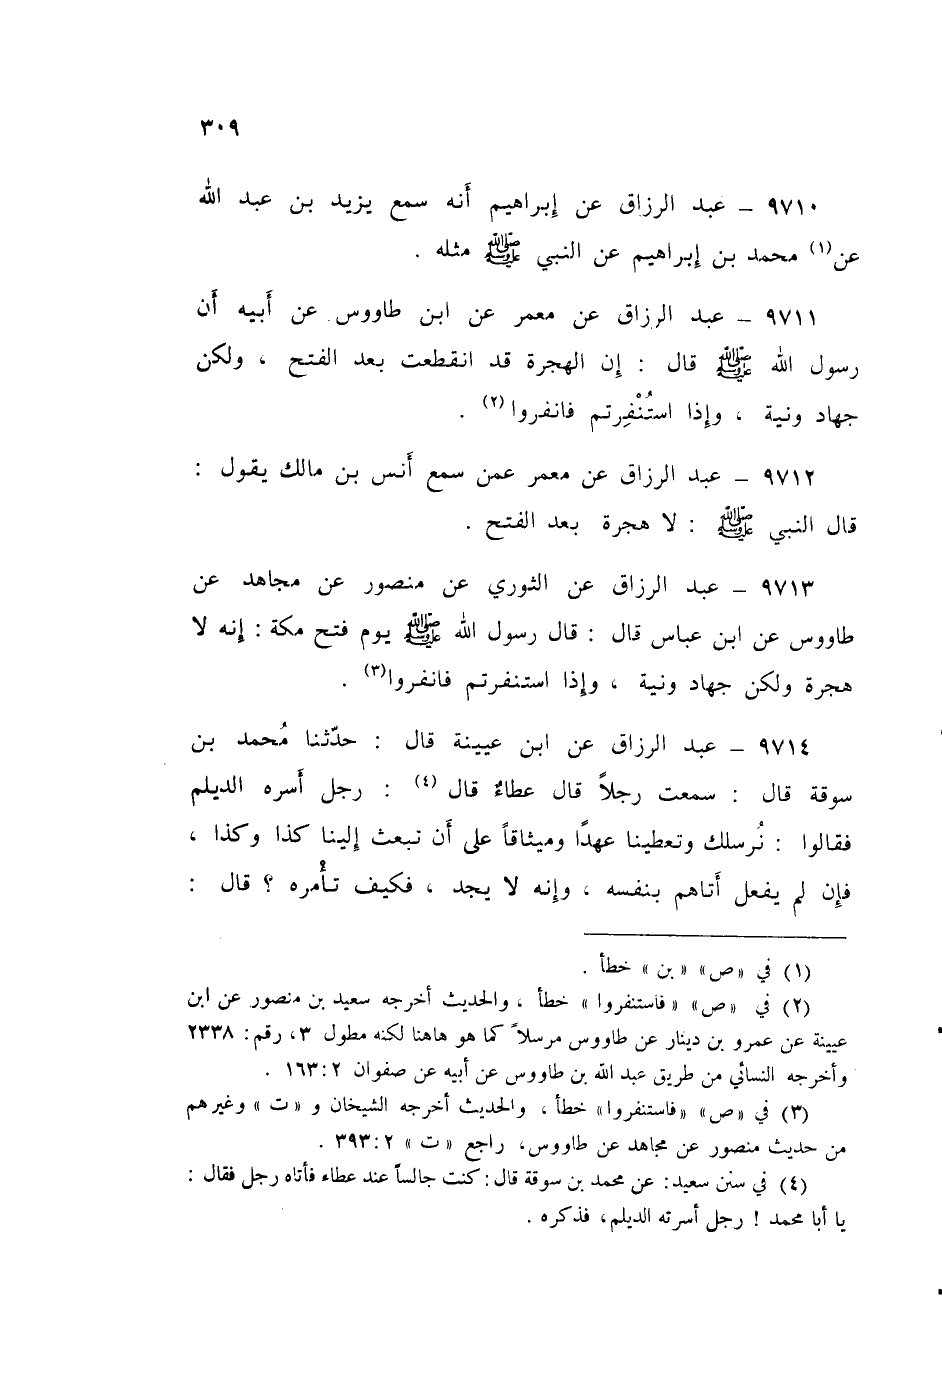 ٣٠٩
٩٧١٠ – عبد الرزاق عن إبراهيم أنه سمع يزيد بن عبد الله
عن(١) محمد بن إبراهيم عن النبي ﷺ مثله .
٩٧١١ – عبد الرزاق عن معمر عن ابن طاووس عن أبيه أن
رسول الله ﷺ قال : إن الهجرة قد انقطعت بعد الفتح ، ولكن
جهاد ونية ، وإذا استُنْفِرتم فانفروا(٢) .
٩٧١٢ – عبد الرزاق عن معمر عمن سمع أنس بن مالك يقول :
قال النبي ﷺ : لا هجرة بعد الفتح .
٩٧١٣ – عبد الرزاق عن الثوري عن منصور عن مجاهد عن
طاووس عن ابن عباس قال : قال رسول الله ﷺ يوم فتح مكة : إنه لا
هجرة ولكن جهاد ونية ، وإذا استنفرتم فانفروا(٣) .
٩٧١٤ – عبد الرزاق عن ابن عيينة قال : حدّثنا مُحمد بن
سوقة قال : سمعت رجلاً قال عطاءٌ قال(٤) : رجل أسره الديلم
فقالوا : نُرسلك وتعطينا عهدًا وميثاقاً على أن نبعث إلينا كذا وكذا ،
فإن لم يفعل أتاهم بنفسه ، وإنه لا يجد ، فكيف تأْمره ؟ قال :
(١) في «ص» «بن» خطأ .
(٢) في «ص» «فاستنفروا» خطأ ، والحديث أخرجه سعيد بن منصور عن ابن
عيينة عن عمرو بن دينار عن طاووس مرسلاً كما هو هاهنا لكنه مطول ٣، رقم: ٢٣٣٨
وأخرجه النسائي من طريق عبد الله بن طاووس عن أبيه عن صفوان ٢:١٦٣ .
(٣) في «ص» «فاستنفروا» خطأ ، والحديث أخرجه الشيخان و «ت» وغيرهم
من حديث منصور عن مجاهد عن طاووس، راجع «ت» ٢:٣٩٣ .
(٤) في سنن سعيد: عن محمد بن سوقة قال : كنت جالساً عند عطاء فأتاه رجل فقال :
يا أبا محمد ! رجل أسرته الديلم، فذكره .